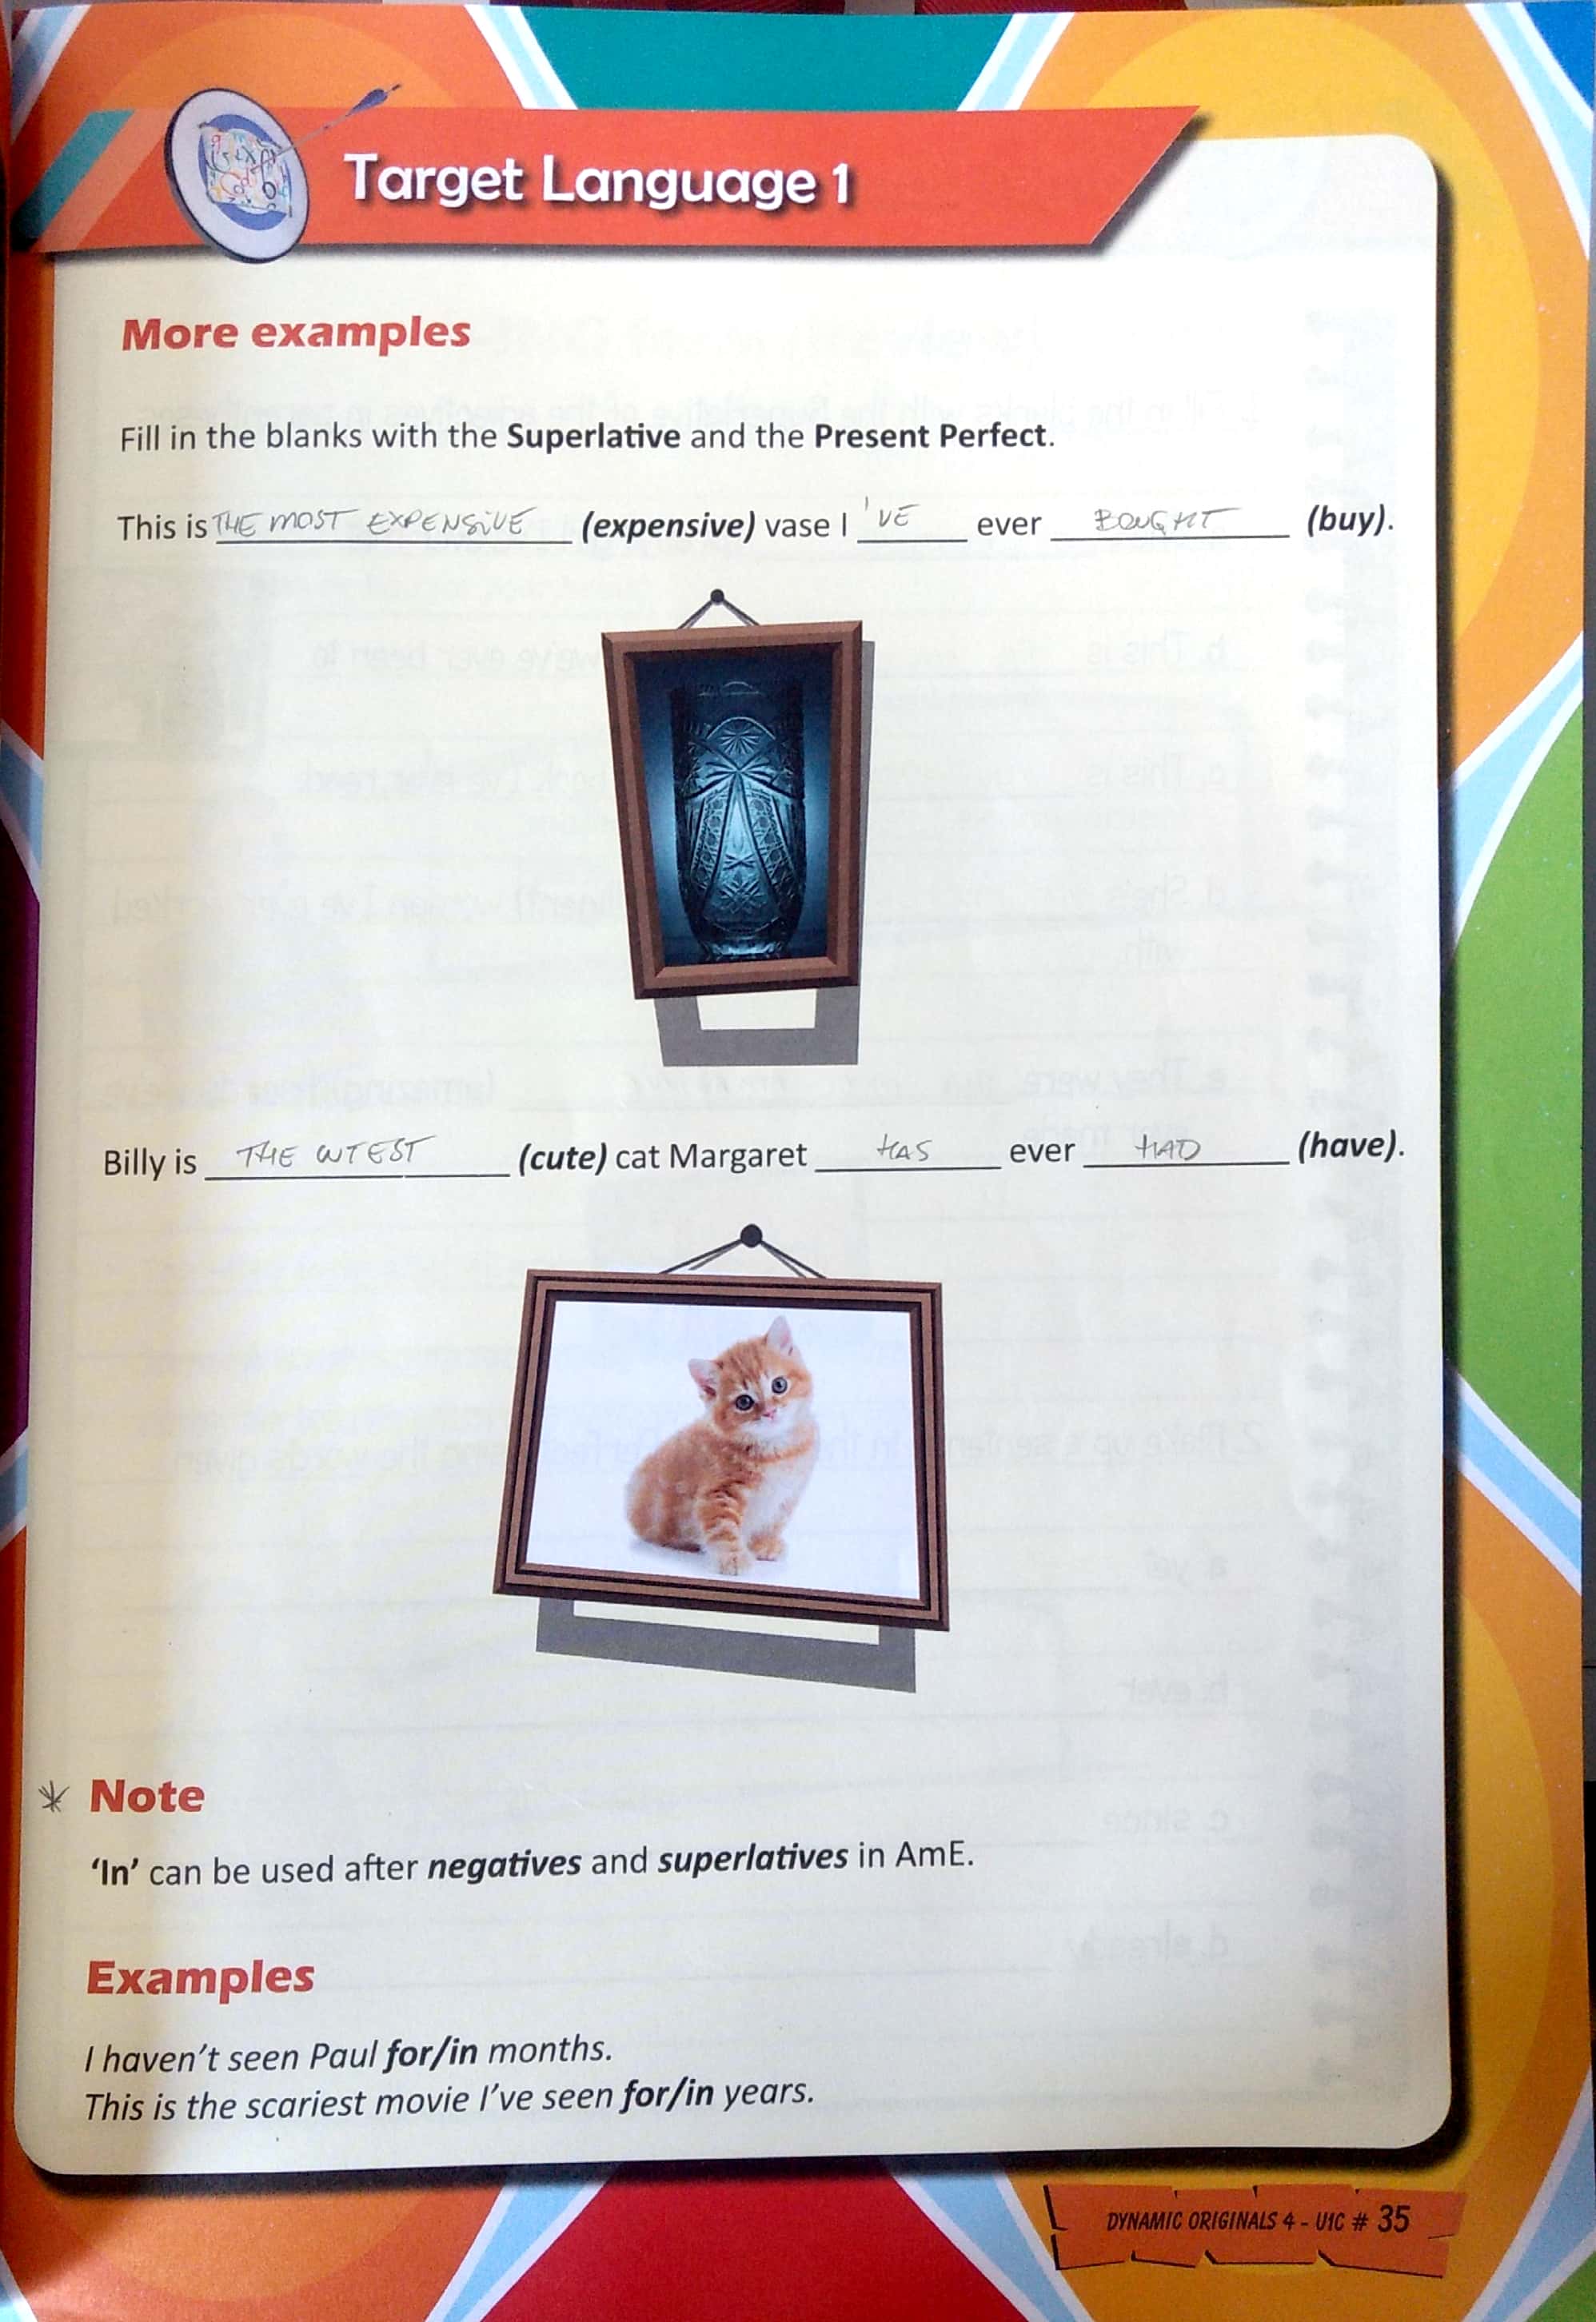 Target Language 1
More examples
Fill in the blanks with the Superlative and the Present Perfect.
This is THE MOST EXPENSIVE (expensive) vase I 'VE ever BOUGHT (buy).
Billy is THE CUTEST (cute) cat Margaret HAS ever HAD (have).
* Note
‘In’ can be used after negatives and superlatives in AmE.
Examples
I haven’t seen Paul for/in months.
This is the scariest movie I’ve seen for/in years.
DYNAMIC ORIGINALS 4 - U1C # 35